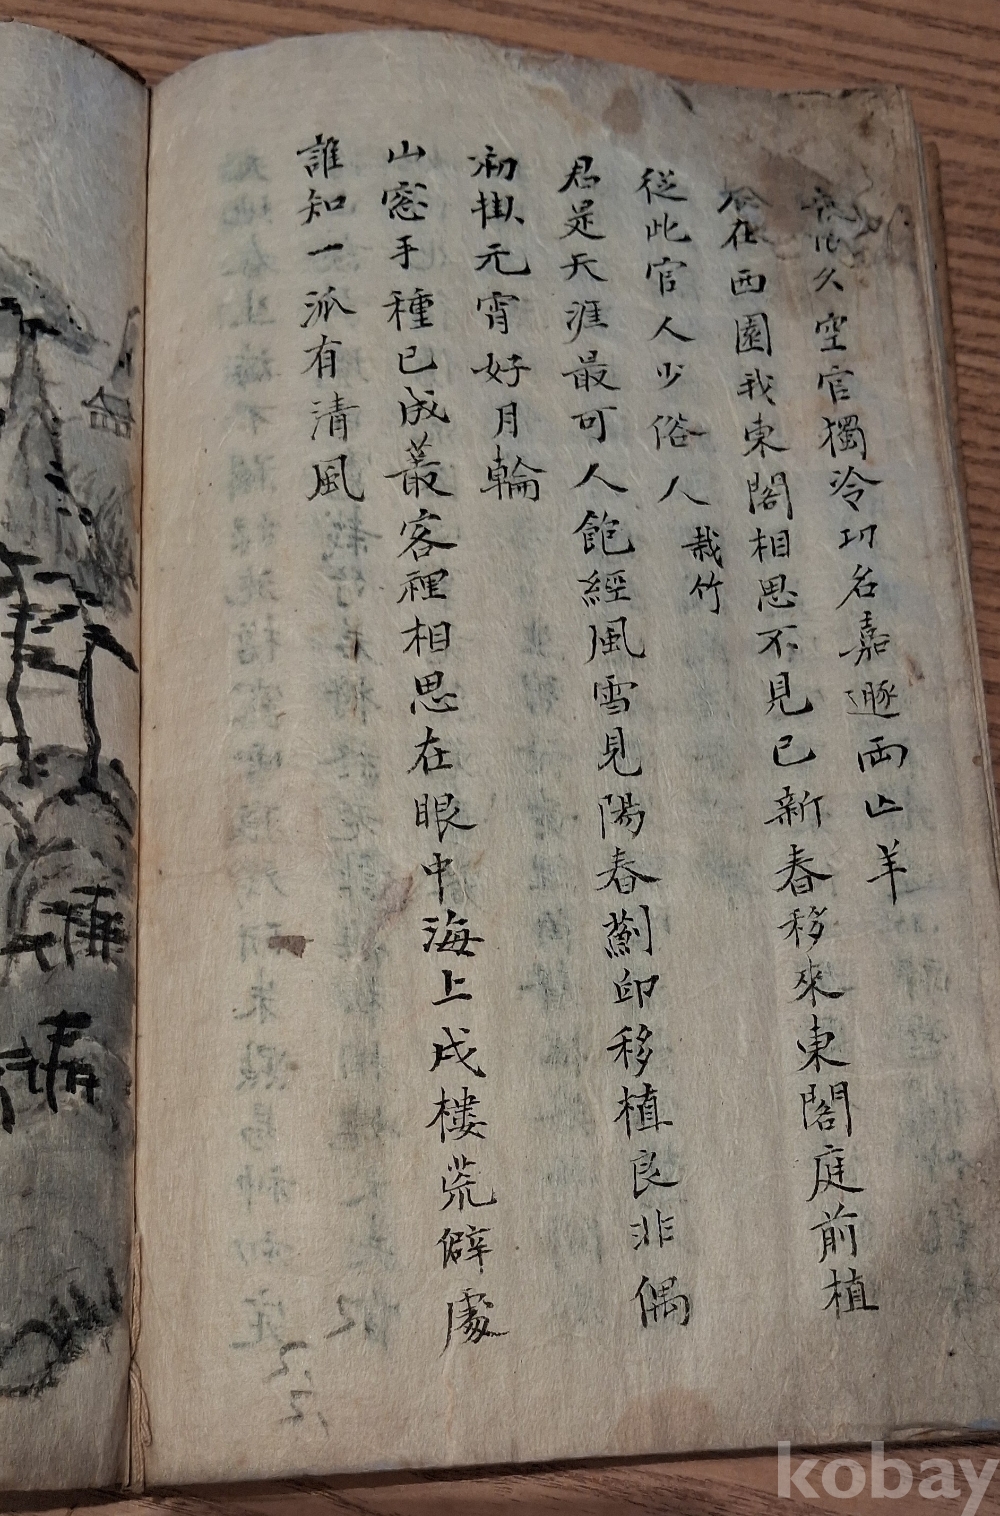 久空官獨冷功名嘉遯両山羊
在西園我東閣相思不見已新春移來東閣庭前植
從此官人少俗人 栽竹
君是天涯最可人飽經風雪見陽春劚印移植良非偶
初掛元宵好月輪
山窓手種已成叢客裡相思在眼中海上戍樓荒僻處
誰知一派有清風
kobay